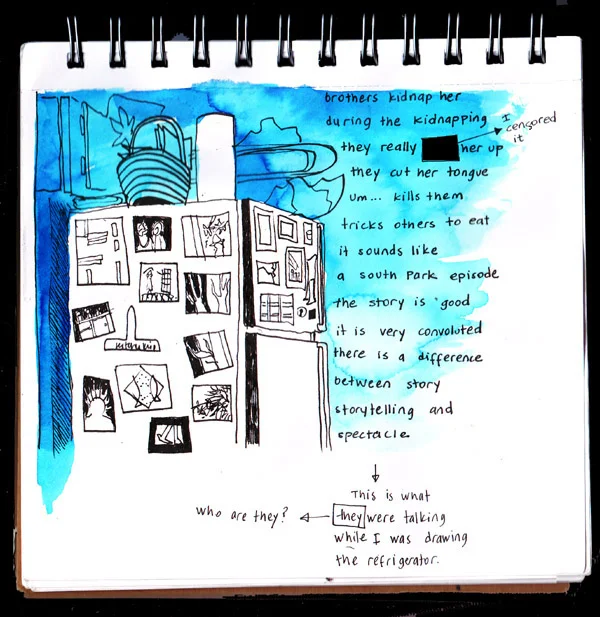 brothers kidnap her
during the kidnapping
I
censored
it
they really her up
they cut her tongue
um... kills them
tricks others to eat
it sounds like
a south park episode
the story is good
it is very convoluted
there is a difference
between story
storytelling and
spectacle
This is what
who are they? they were talking
while I was drawing
the refrigerator.